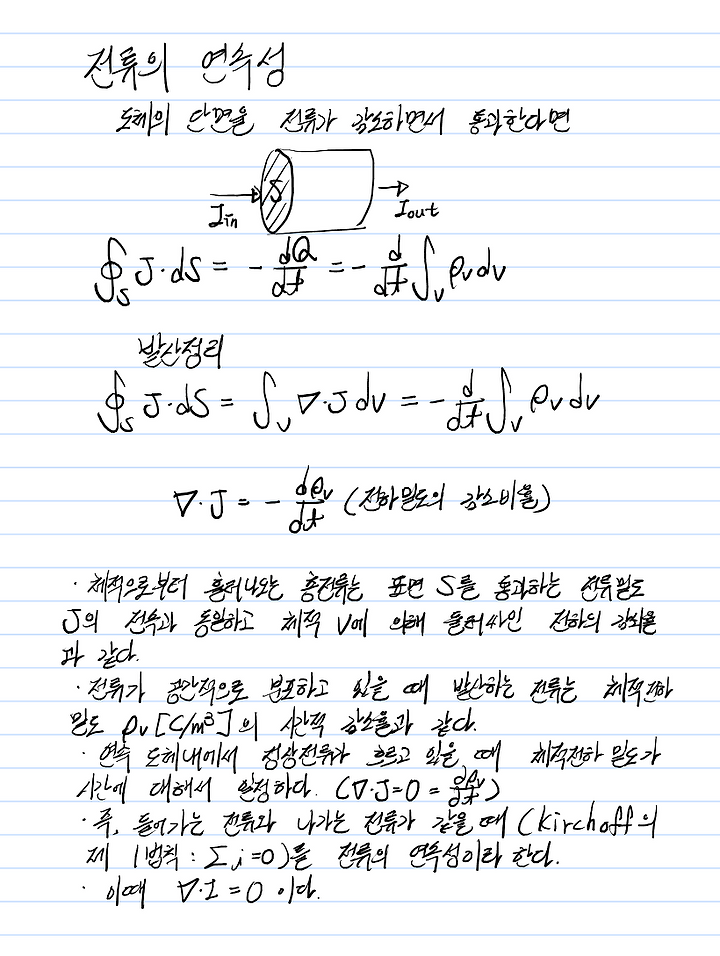 전류의 연속성
도체의 단면을 전류가 감소하면서 통과한다면
I in S I out
∮_S J·dS = - dQ/dt = - d/dt ∫_v ρv dv
발산정리
∮_S J·dS = ∫_v ∇·J dv = - d/dt ∫_v ρv dv
∇·J = - dρv/dt (전하밀도의 감소비율)
· 체적으로부터 흘러나오는 총전류는 표면 S를 통과하는 전류밀도
J의 전속과 동일하고 체적 V에 의해 둘러싸인 전하의
과 같다.
· 전류가 공간적으로 분포하고 있을 때 발산하는 전류는 체적전하
밀도 ρv [C/m³]의 시간적 감소율과 같다.
· 연속 도체내에서 정상전류가 흐르고 있을 때 체적전하 밀도가
시간에 대해서 일정하다. (∇·J=0 = dρv/dt)
· 즉, 들어가는 전류와 나가는 전류가 같을 때 (Kirchoff의
제 1법칙 : Σi=0)를 전류의 연속성이라 한다.
· 이때 ∇·I = 0 이다.